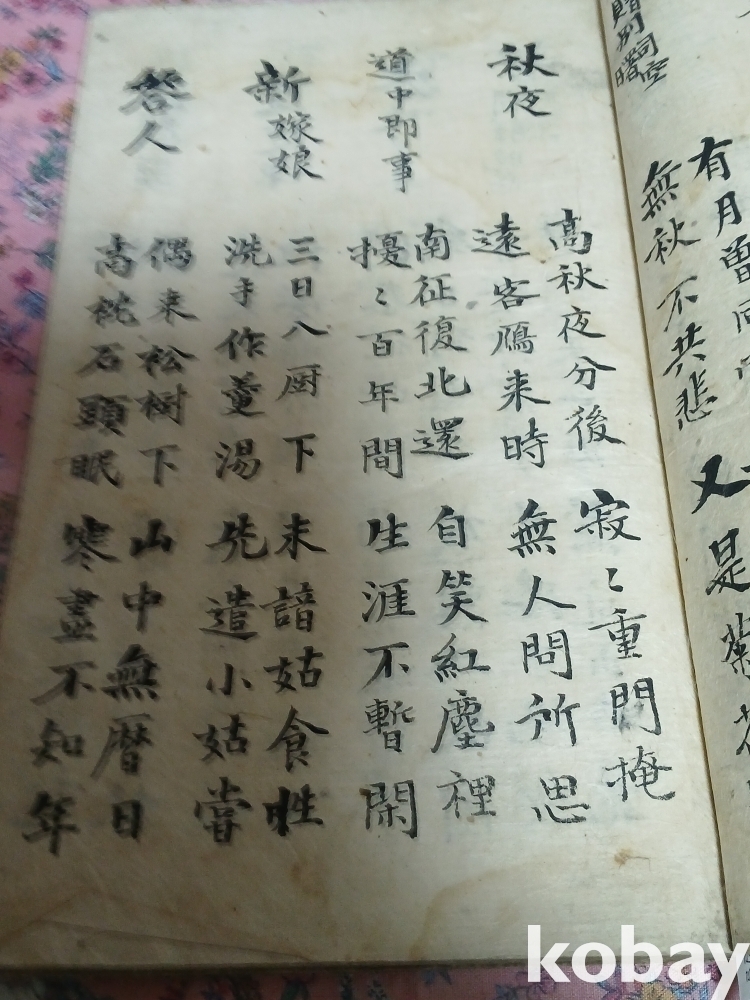 贈別司空曙
有月曾同
無秋不共悲
又是菊花
秋夜
高秋夜分後
遠客鴈来時
寂〻重門掩
無人問所思
道中即事
南征復北還
擾〻百年間
自笑紅塵裡
生涯不暫閑
新嫁娘
三日入厨下
洗手作羹湯
未諳姑食性
先遣小姑嘗
答人
偶来松樹下
高枕石頭眠
山中無曆日
寒盡不知年
kobay